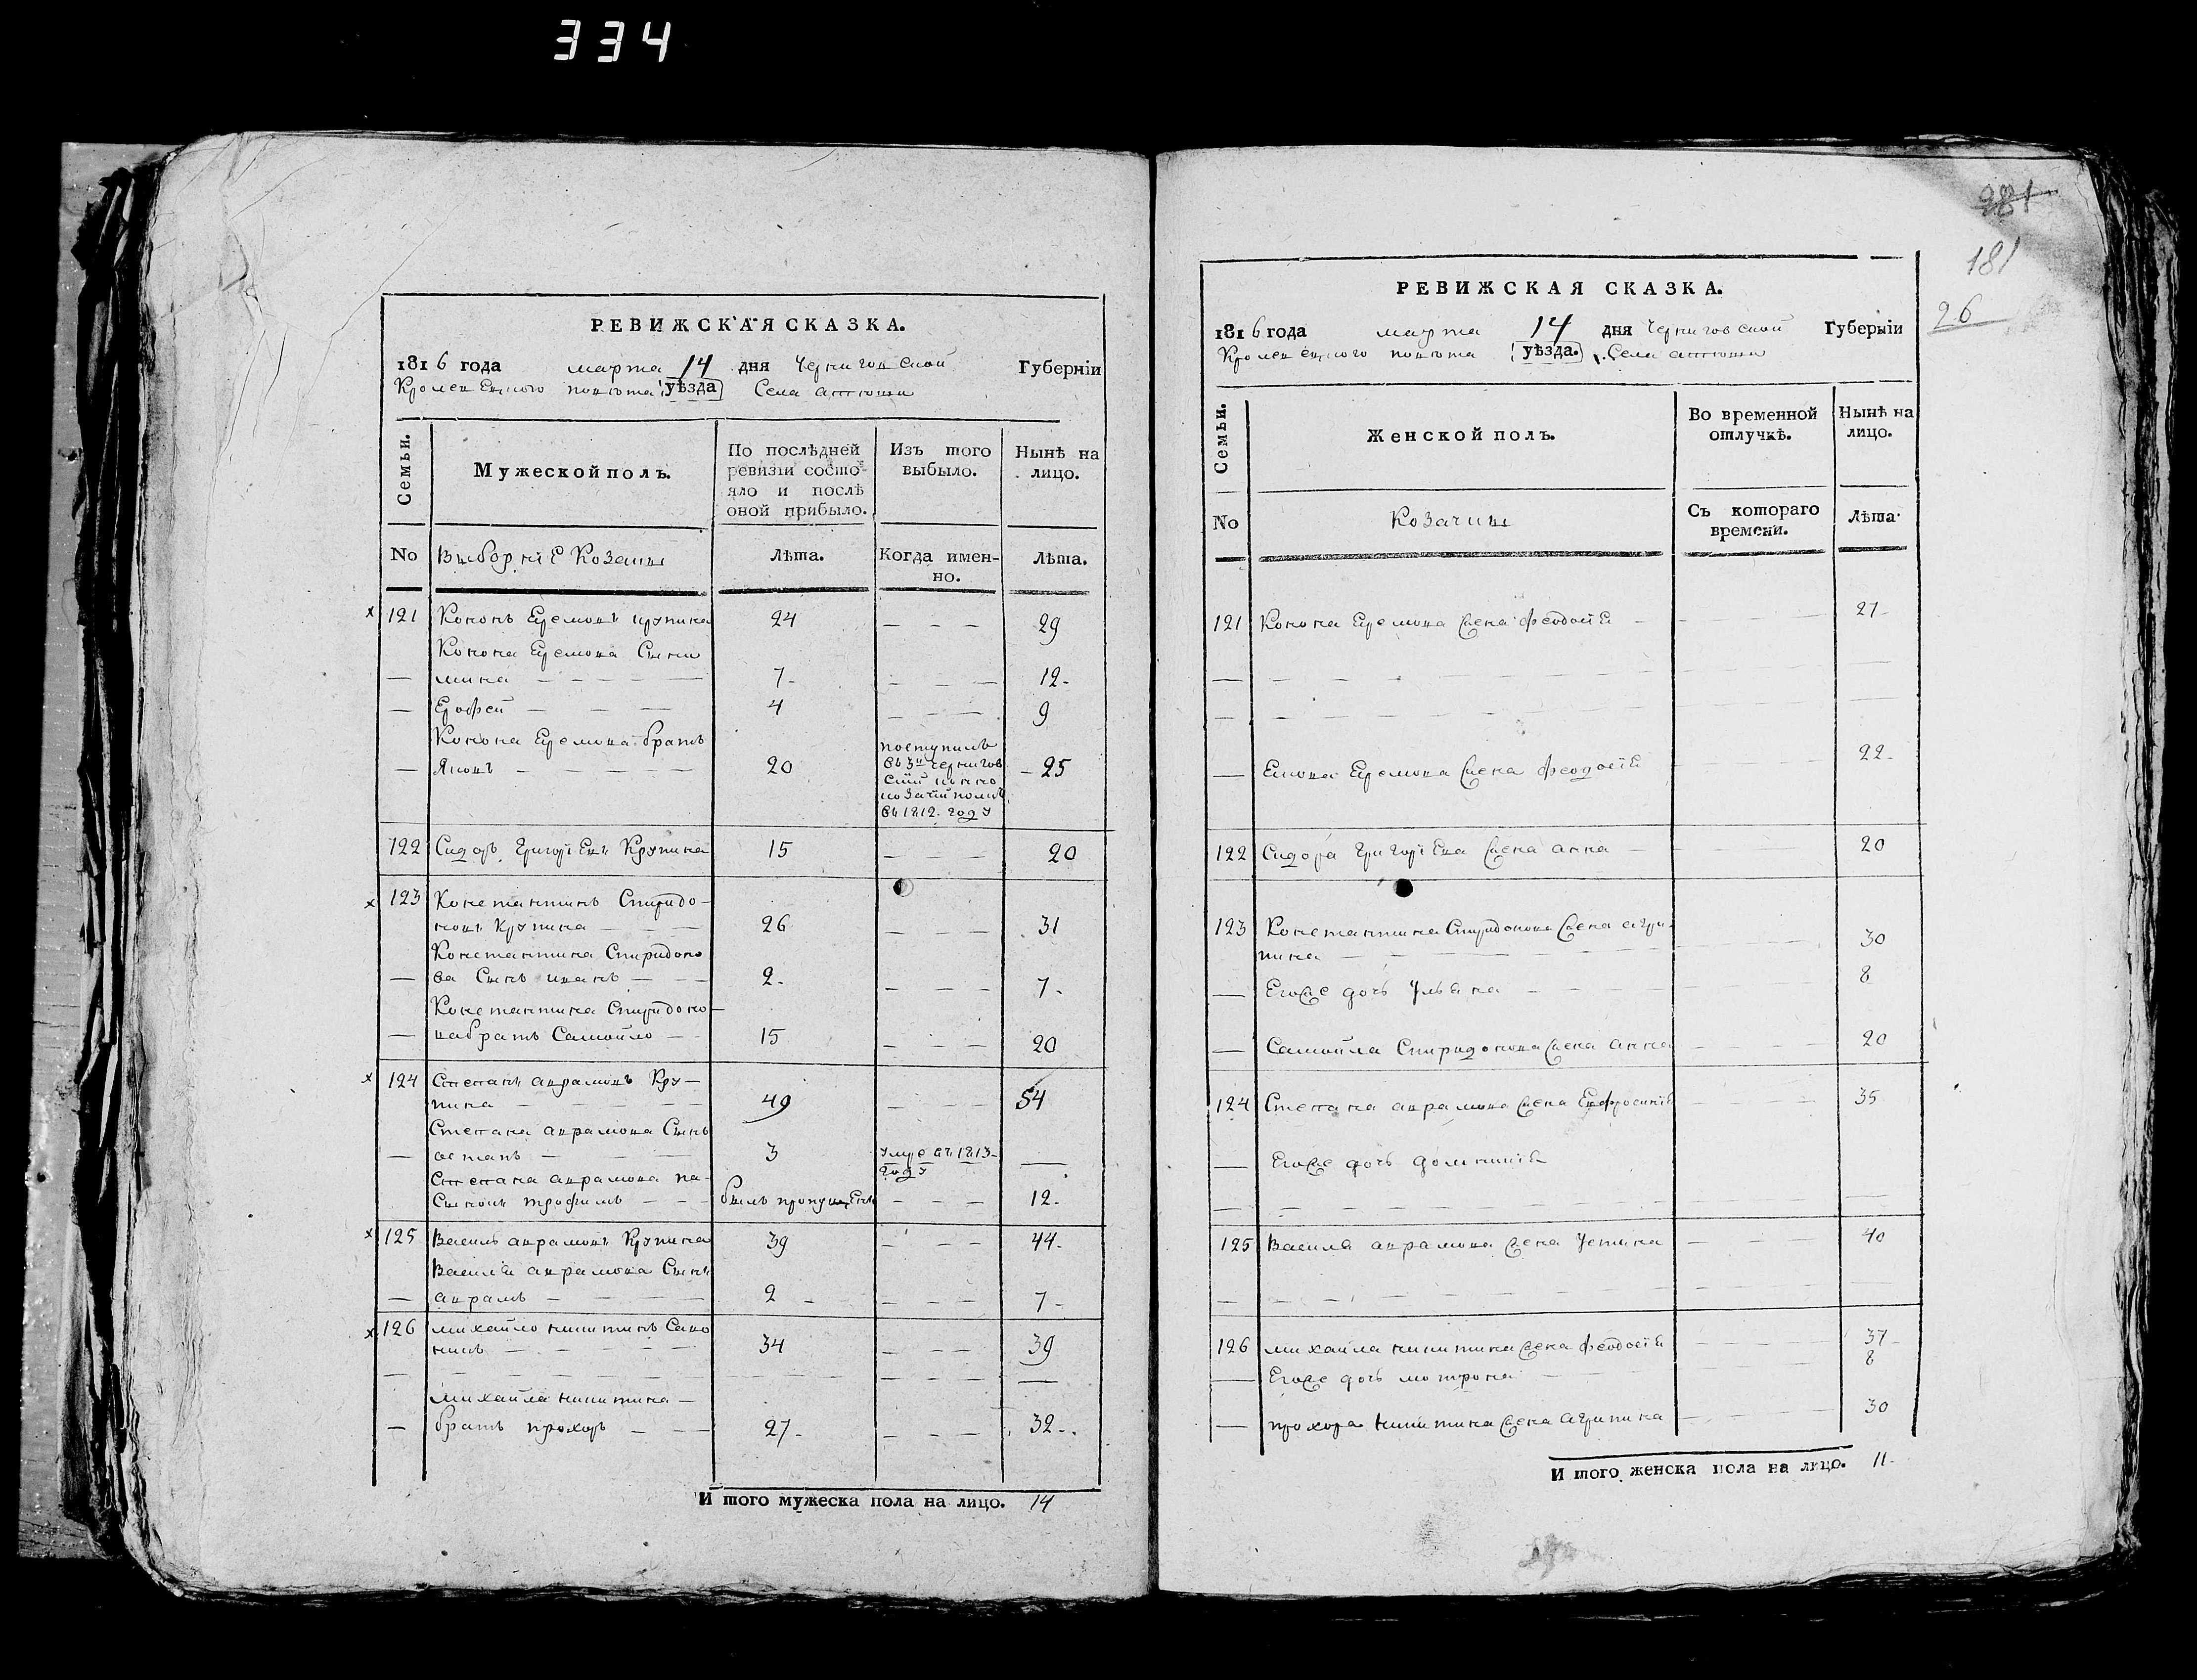 334
РЕВИЖСКАЯ СКАЗКА.
1816 года марта 14 дня Черниговской Губернїи
Кролевецкого повѣта уѣзда Села
Семьи.
Мужеской полъ.
По послѣдней ревизїи состояло и послѣ оной прибыло.
Изъ того выбыло.
Нынѣ на лицо.
No
Выборнїе Козаки
Лѣта.
Когда именно.
Лѣта.
121 Кононъ Еремовъ Крупика 24 — — — 29
Конона Еремова Сыни
— мина — — — — 7 — — — 12
— Ерофей — — — 4 — — — 9
Конона Еремова братъ
— Яковъ — — — — 20 поступилъ въ 3й Черниговскій конно козачій полкъ въ 1812 году — 25
122 Сидоръ Григорїевъ Крупика 15 — — — 20
123 Константинъ Спиридо-
новъ Крупика — — — 26 — — — 31
Константина Спиридоно
— ва Сынъ иванъ — — — 2 — — — 7
Константина Спиридоно-
— ва братъ Самойло — — 15 — — — 20
124 Степанъ аврамовъ Кру-
пика — — — — 49 — — — 54
Степана аврамова Сынъ
— — — — 3 умре въ 1813 году —
Степана аврамова па-
Сынокъ трофимъ — — — былъ пропущенъ — — — 12
125 Василь аврамовъ Крупика 39 — — — 44
Василія аврамова Сынъ
— аврамъ — — — 2 — — — 7
126 михайло никитинъ
— — — — 34 — — — 39
— — — — — — — — — — —
михайла никитина —
— братъ прохоръ — — — 27 — — — 32
И того мужеска пола на лицо. 14
281
181
26
РЕВИЖСКАЯ СКАЗКА.
1816 года марта 14 дня Черниговской Губернїи
Кролевецкого повѣта уѣзда. Села
Семьи.
Женской полъ.
Во временной отлучкѣ.
Нынѣ на лицо.
No
Козачки
Съ котораго времени.
Лѣта.
121 Конона Еремова жена феодосїя — — — — 27
— — — — — — — — —
— — — — — — — — —
— Якова Еремова жена феодосїя — — — — 22
122 Сидора Григорїева жена анна — — — — 20
123 Константина Спиридонова жена агри-
пина — — — — — — 30
— Егоже дочь Ульяна — — — — 8
— Самойла Спиридонова жена анна — — — — 20
124 Степана аврамова жена Евфросинїя — — — — 35
— Егоже дочь домникія
— — — — — — — — —
125 Василя аврамова жена Устина — — — 40
— — — — — — — — —
126 михайла никитина жена феодосїя — — — — 37
— Егоже дочь мотрона — — — — 8
— прохора никитина жена агрипина — — — — 30
И того женска пола на лицо. 11